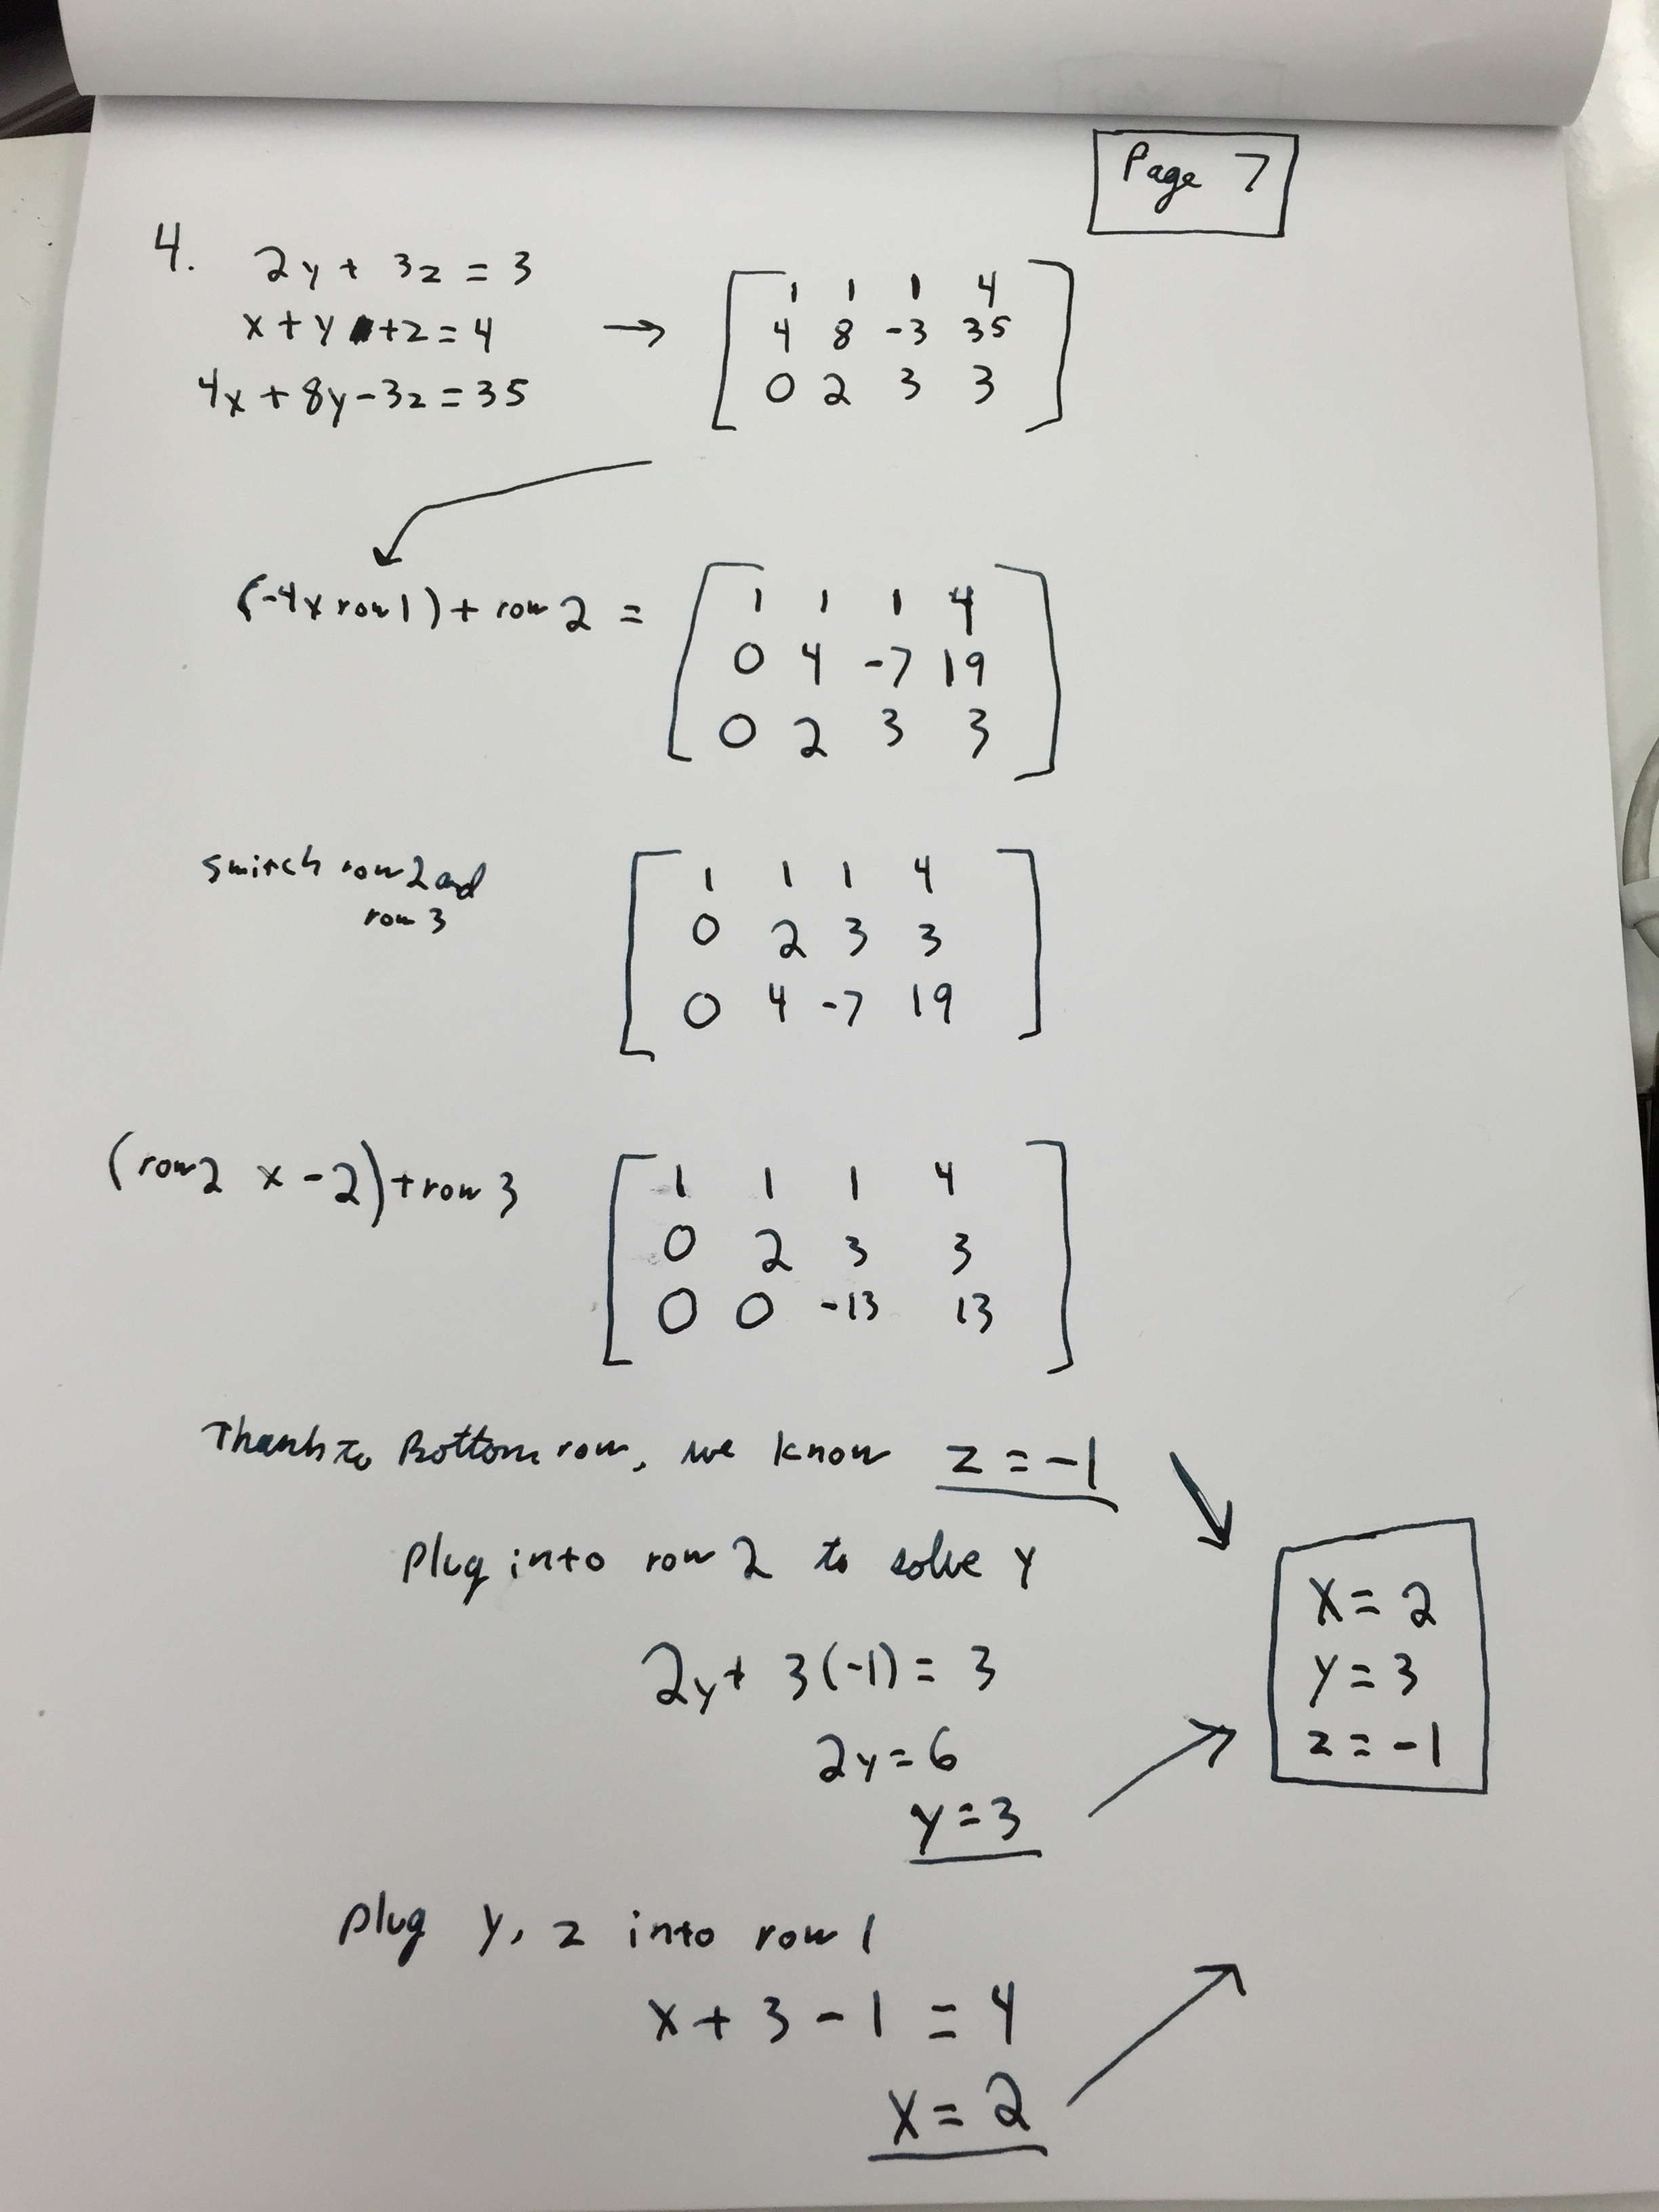 Page 7
4. 2y + 3z = 3
x + y + z = 4
4x + 8y - 3z = 35
→
1 1 1 4
4 8 -3 35
0 2 3 3
(-4 x row 1) + row 2 =
1 1 1 4
0 4 -7 19
0 2 3 3
switch row 2 and
row 3
1 1 1 4
0 2 3 3
0 4 -7 19
(row 2 x -2) + row 3
1 1 1 4
0 2 3 3
0 0 -13 13
Thanks to Bottom row, we know z = -1
plug into row 2 to solve y
2y + 3(-1) = 3
2y = 6
y = 3
x = 2
y = 3
z = -1
plug y, z into row 1
x + 3 - 1 = 4
x = 2